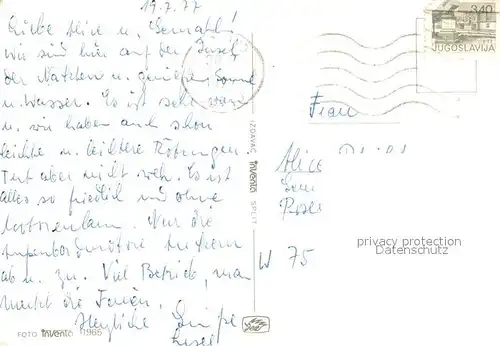 19.7.77
Liebe Alice u. Gemahl!
Wir sind hier auf der Insel
der Nackten u. genießen Sonne
u. Wasser. Es ist sehr warm
u. wir haben auch schon
leichte u. leichtere Rötungen.
Tut aber nicht weh. Es ist
alles so friedlich und ohne
Motorenlärm. Nur die
ab u. zu. Viel Betrieb, man
merkt die Ferien.
Herzliche
Liesel
FOTO inventa 1965
IZDAVAČ inventa SPLIT
340
JUGOSLAVIJA
Frau
Alice
W 75
privacy protection
Datenschutz